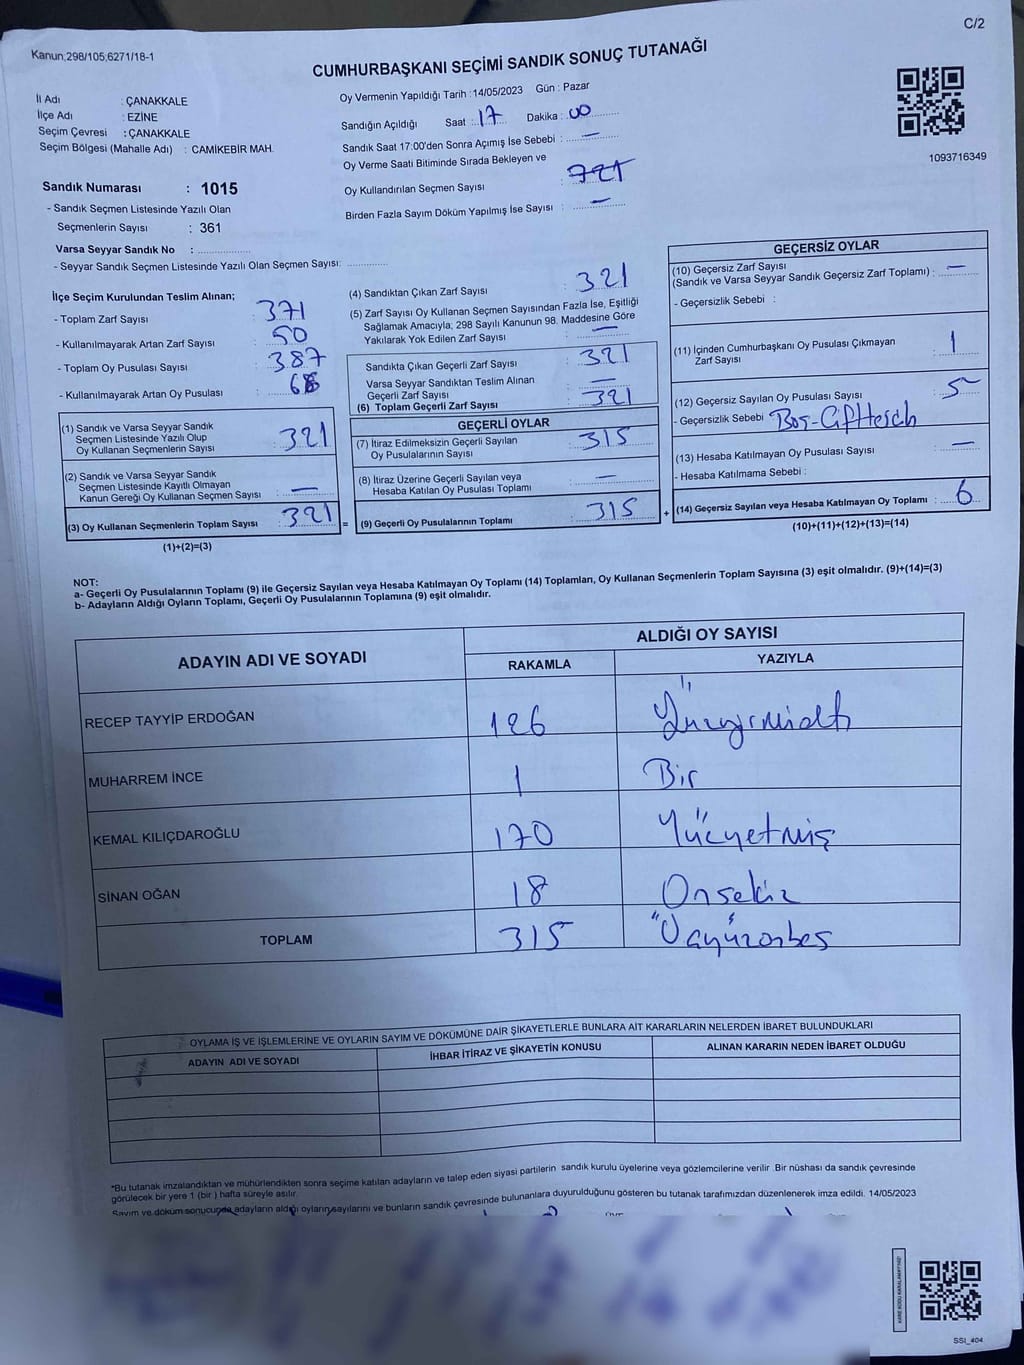 C/2
Kanun;298/105;6271/18-1
CUMHURBAŞKANI SEÇİMİ SANDIK SONUÇ TUTANAĞI
İl Adı : ÇANAKKALE
İlçe Adı : EZİNE
Seçim Çevresi : ÇANAKKALE
Seçim Bölgesi (Mahalle Adı) : CAMİKEBİR MAH.
Sandık Numarası : 1015
- Sandık Seçmen Listesinde Yazılı Olan
Seçmenlerin Sayısı : 361
Varsa Seyyar Sandık No :
- Seyyar Sandık Seçmen Listesinde Yazılı Olan Seçmen Sayısı:
Oy Vermenin Yapıldığı Tarih :14/05/2023 Gün : Pazar
Sandığın Açıldığı Saat : 17 Dakika : 00
Sandık Saat 17:00'den Sonra Açımış İse Sebebi : —
Oy Verme Saati Bitiminde Sırada Bekleyen ve
Oy Kullandırılan Seçmen Sayısı :
Birden Fazla Sayım Döküm Yapılmış İse Sayısı : —
1093716349
İlçe Seçim Kurulundan Teslim Alınan;
- Toplam Zarf Sayısı : 371
- Kullanılmayarak Artan Zarf Sayısı : 50
- Toplam Oy Pusulası Sayısı : 387
- Kullanılmayarak Artan Oy Pusulası :
(1) Sandık ve Varsa Seyyar Sandık
Seçmen Listesinde Yazılı Olup
Oy Kullanan Seçmenlerin Sayısı : 321
(2) Sandık ve Varsa Seyyar Sandık
Seçmen Listesinde Kayıtlı Olmayan
Kanun Gereği Oy Kullanan Seçmen Sayısı : —
(3) Oy Kullanan Seçmenlerin Toplam Sayısı : 321 =
(1)+(2)=(3)
(4) Sandıktan Çıkan Zarf Sayısı : 321
(5) Zarf Sayısı Oy Kullanan Seçmen Sayısından Fazla İse, Eşitliği
Sağlamak Amacıyla; 298 Sayılı Kanunun 98. Maddesine Göre
Yakılarak Yok Edilen Zarf Sayısı : —
Sandıkta Çıkan Geçerli Zarf Sayısı : 321
Varsa Seyyar Sandıktan Teslim Alınan
Geçerli Zarf Sayısı : —
(6) Toplam Geçerli Zarf Sayısı : 321
GEÇERLİ OYLAR
(7) İtiraz Edilmeksizin Geçerli Sayılan
Oy Pusulalarının Sayısı : 315
(8) İtiraz Üzerine Geçerli Sayılan veya
Hesaba Katılan Oy Pusulası Toplamı : —
(9) Geçerli Oy Pusulalarının Toplamı : 315 +
GEÇERSİZ OYLAR
(10) Geçersiz Zarf Sayısı
(Sandık ve Varsa Seyyar Sandık Geçersiz Zarf Toplamı) : —
- Geçersizlik Sebebi :
(11) İçinden Cumhurbaşkanı Oy Pusulası Çıkmayan
Zarf Sayısı : 1
(12) Geçersiz Sayılan Oy Pusulası Sayısı : 5
- Geçersizlik Sebebi : Boş-
(13) Hesaba Katılmayan Oy Pusulası Sayısı : —
- Hesaba Katılmama Sebebi :
(14) Geçersiz Sayılan veya Hesaba Katılmayan Oy Toplamı : 6
(10)+(11)+(12)+(13)=(14)
NOT:
a- Geçerli Oy Pusulalarının Toplamı (9) ile Geçersiz Sayılan veya Hesaba Katılmayan Oy Toplamı (14) Toplamları, Oy Kullanan Seçmenlerin Toplam Sayısına (3) eşit olmalıdır. (9)+(14)=(3)
b- Adayların Aldığı Oyların Toplamı, Geçerli Oy Pusulalarının Toplamına (9) eşit olmalıdır.
ADAYIN ADI VE SOYADI ALDIĞI OY SAYISI
RAKAMLA YAZIYLA
RECEP TAYYİP ERDOĞAN 126 Yüzyirmialtı
MUHARREM İNCE 1 Bir
KEMAL KILIÇDAROĞLU 170 Yüzyetmiş
SİNAN OĞAN 18 Onsekiz
TOPLAM 315 Üçyüzonbeş
OYLAMA İŞ VE İŞLEMLERİNE VE OYLARIN SAYIM VE DÖKÜMÜNE DAİR ŞİKAYETLERLE BUNLARA AİT KARARLARIN NELERDEN İBARET BULUNDUKLARI
ADAYIN ADI VE SOYADI İHBAR İTİRAZ VE ŞİKAYETİN KONUSU ALINAN KARARIN NEDEN İBARET OLDUĞU
*Bu tutanak imzalandıktan ve mühürlendikten sonra seçime katılan adayların ve talep eden siyasi partilerin sandık kurulu üyelerine veya gözlemcilerine verilir .Bir nüshası da sandık çevresinde
görülecek bir yere 1 (bir ) hafta süreyle asılır.
Sayım ve döküm sonucunda adayların aldığı oyların sayılarını ve bunların sandık çevresinde bulunanlara duyurulduğunu gösteren bu tutanak tarafımızdan düzenlenerek imza edildi. 14/05/2023
SSI_404